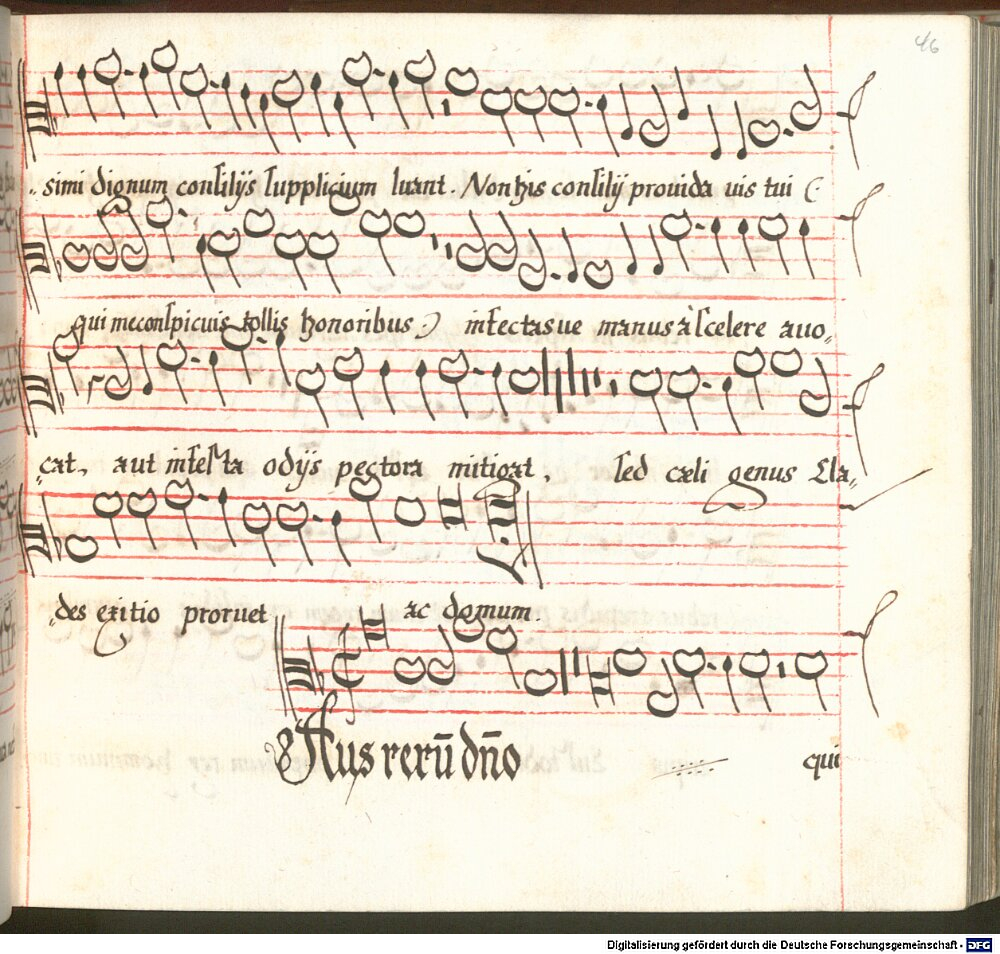 46
simi dignum consilijs supplicium luant. Non his consilij prouida uis tui (:
qui me conspicuis tollis honoribus :) infectasue manus à scelere auo„
„cat, aut infesta odijs pectora mitigat, sed cæli genus Cla„
„des exitio proruet ac domum.
Laus rerū dño qui
Digitalisierung gefördert durch die Deutsche Forschungsgemeinschaft - DFG